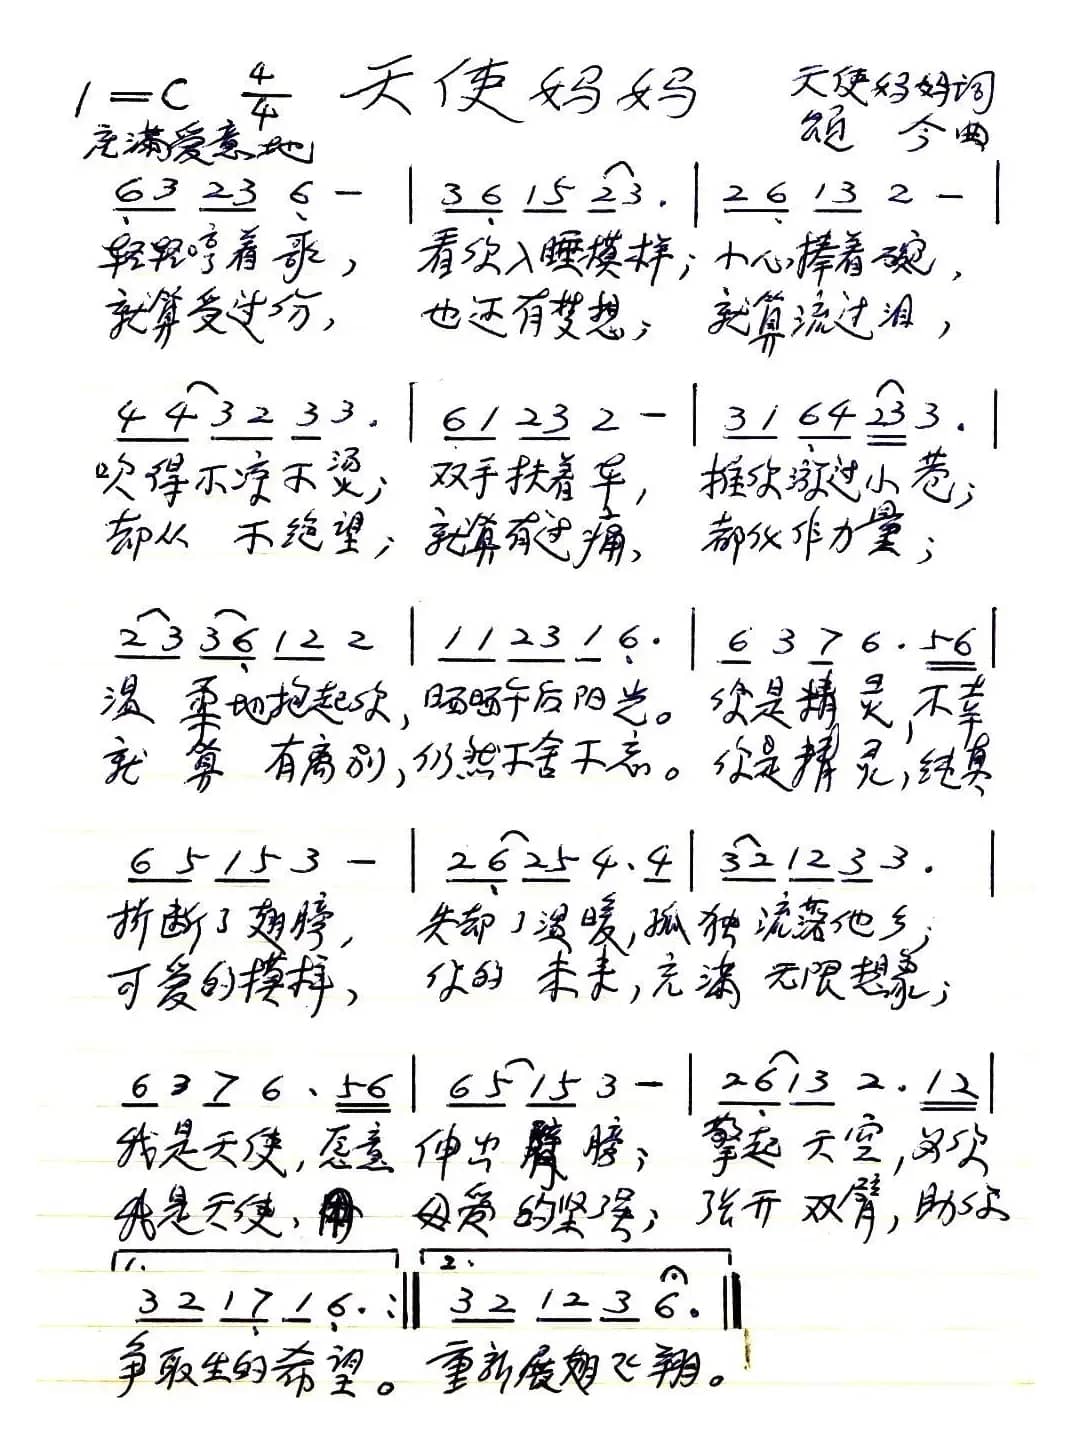 1=C 4/4 天使妈妈 天使妈妈词
充满爱意地 颂 今曲
63 23 6 - | 36 15 23. | 26 13 2 - |
轻轻哼着歌， 看你入睡模样； 小心捧着碗，
就算受过伤， 也还有梦想； 就算流过泪，
44 32 33. | 61 23 2 - | 31 64 23 3. |
吹得不凉不烫； 双手扶着车， 推你漫过小巷；
却从 不绝望； 就算有过痛， 都化作力量；
23 36 12 2 | 11 23 1 6. | 6 3 7 6. 56 |
温 柔地抱起你， 晒晒午后阳光。 你是精灵，不幸
就 算 有离别， 仍然不舍不忘。 你是精灵，纯真
65 15 3 - | 26 25 4. 4 | 32 12 3 3. |
折断了翅膀， 失却了温暖，孤独 流落他乡；
可爱的模样， 你的 未来，充满 无限想象；
6 3 7 6. 56 | 65 15 3 - | 26 13 2. 12 |
我是天使，愿意 伸出臂膀； 擎起 天空，为你
我是天使，用 母爱的坚强； 张开 双臂，助你
1. 2.
32 17 1 6. :|| 32 12 3 6. ||
争取生的希望。 重新展翅飞翔。